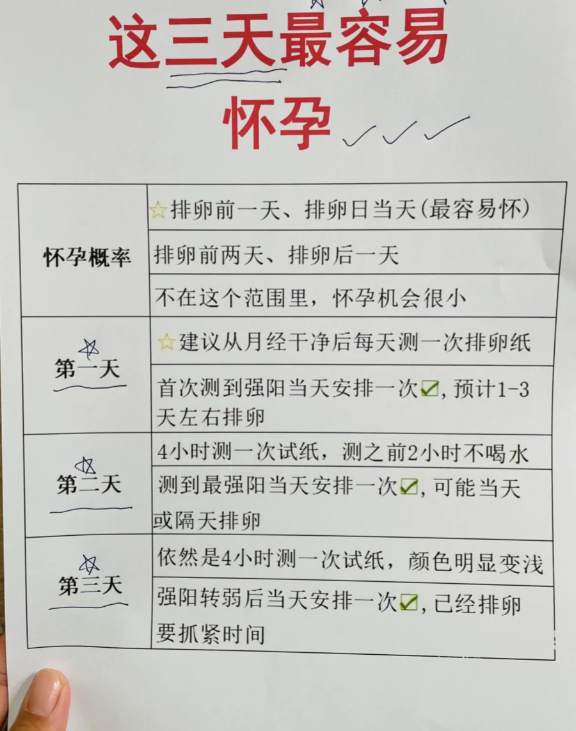 这三天最容易
怀孕
怀孕概率
☆排卵前一天、排卵日当天(最容易怀)
排卵前两天、排卵后一天
不在这个范围里，怀孕机会很小
第一天
☆建议从月经干净后每天测一次排卵纸
首次测到强阳当天安排一次☑,预计1-3
天左右排卵
第二天
4小时测一次试纸，测之前2小时不喝水
测到最强阳当天安排一次☑,可能当天
或隔天排卵
第三天
依然是4小时测一次试纸，颜色明显变浅
强阳转弱后当天安排一次☑,已经排卵
要抓紧时间